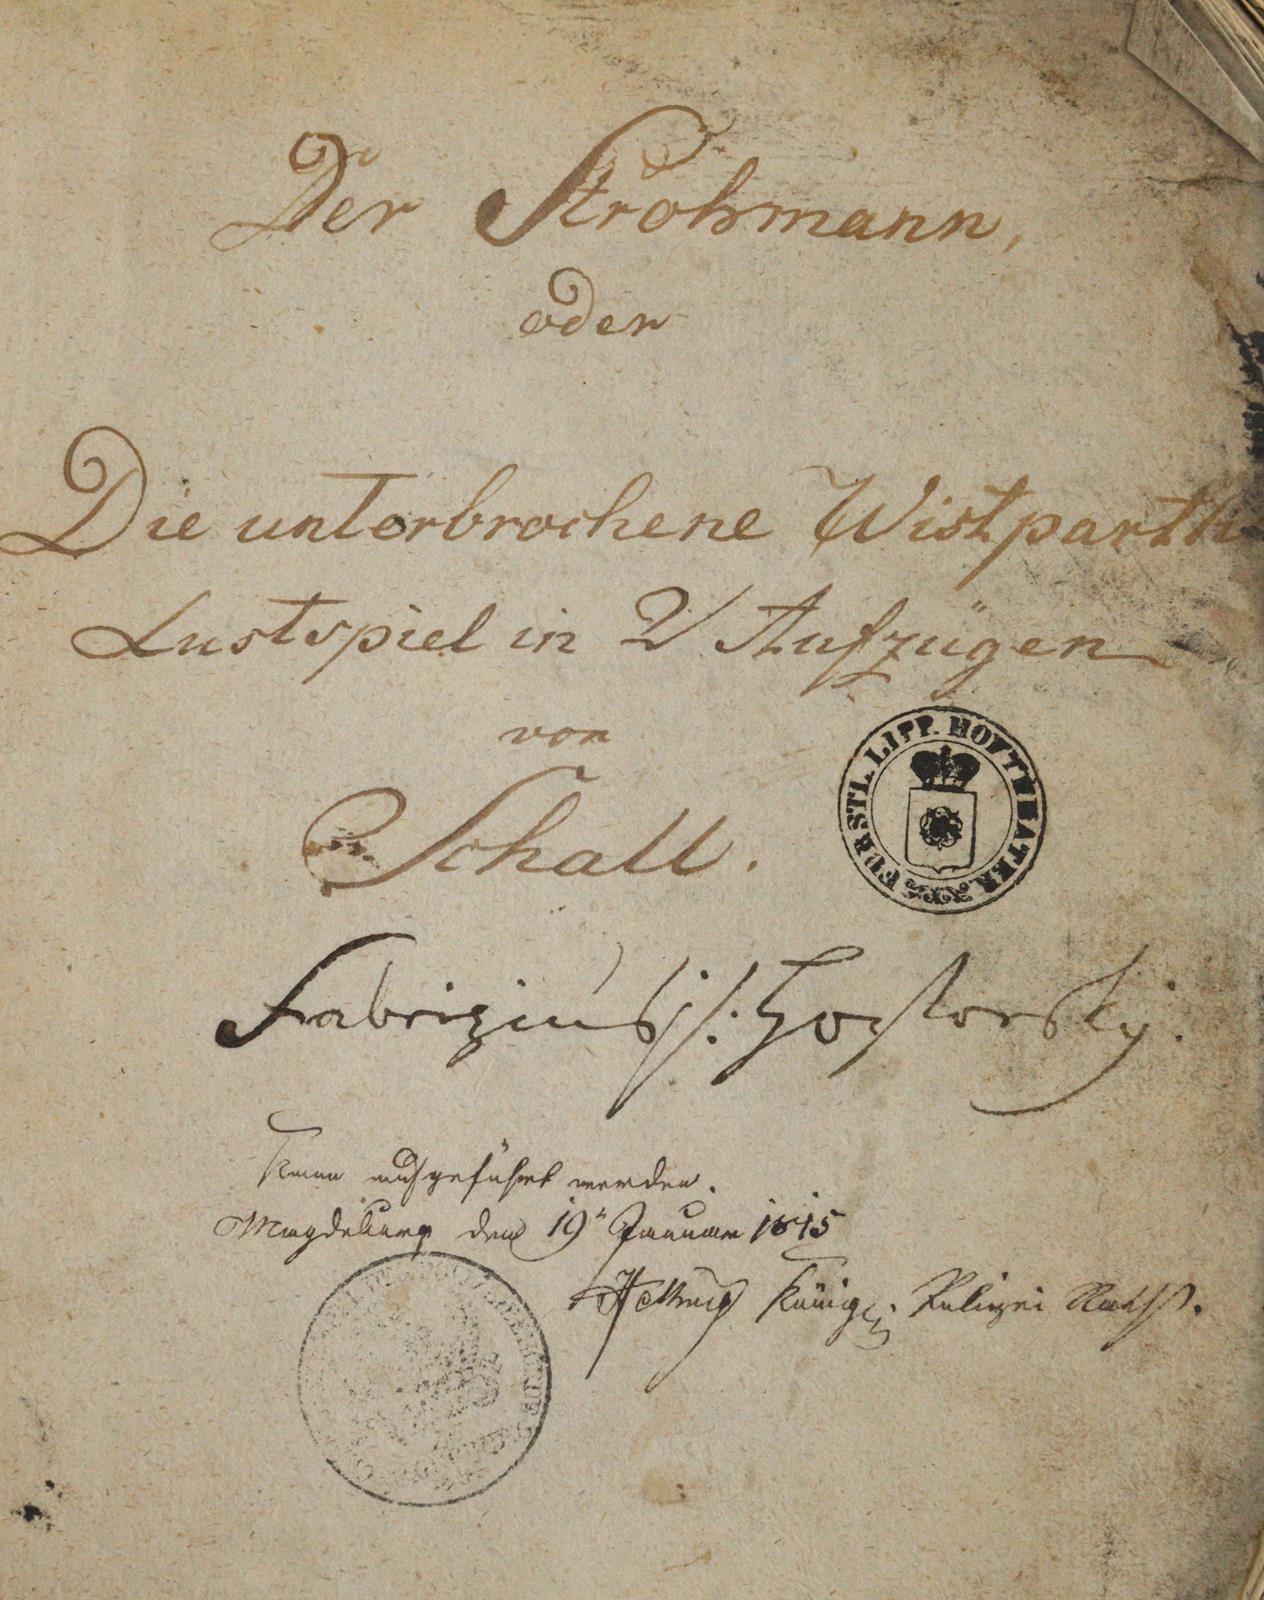 Der Strohmann,
oder
Die unterbrochene Wistparthi
Lustspiel in 2 Aufzügen
von
Schall.
FÜRSTL. LIPP. HOFTHEATER.
Fabrizius
Kann aufgeführt werden.
Magdeburg den 19n Januar 1815
Königl. Polizei Rath